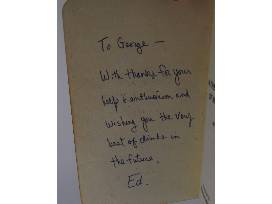 To George —
With thanks for your
help & enthusiasm and
wishing you the very
best of climbs in
the future,
Ed.